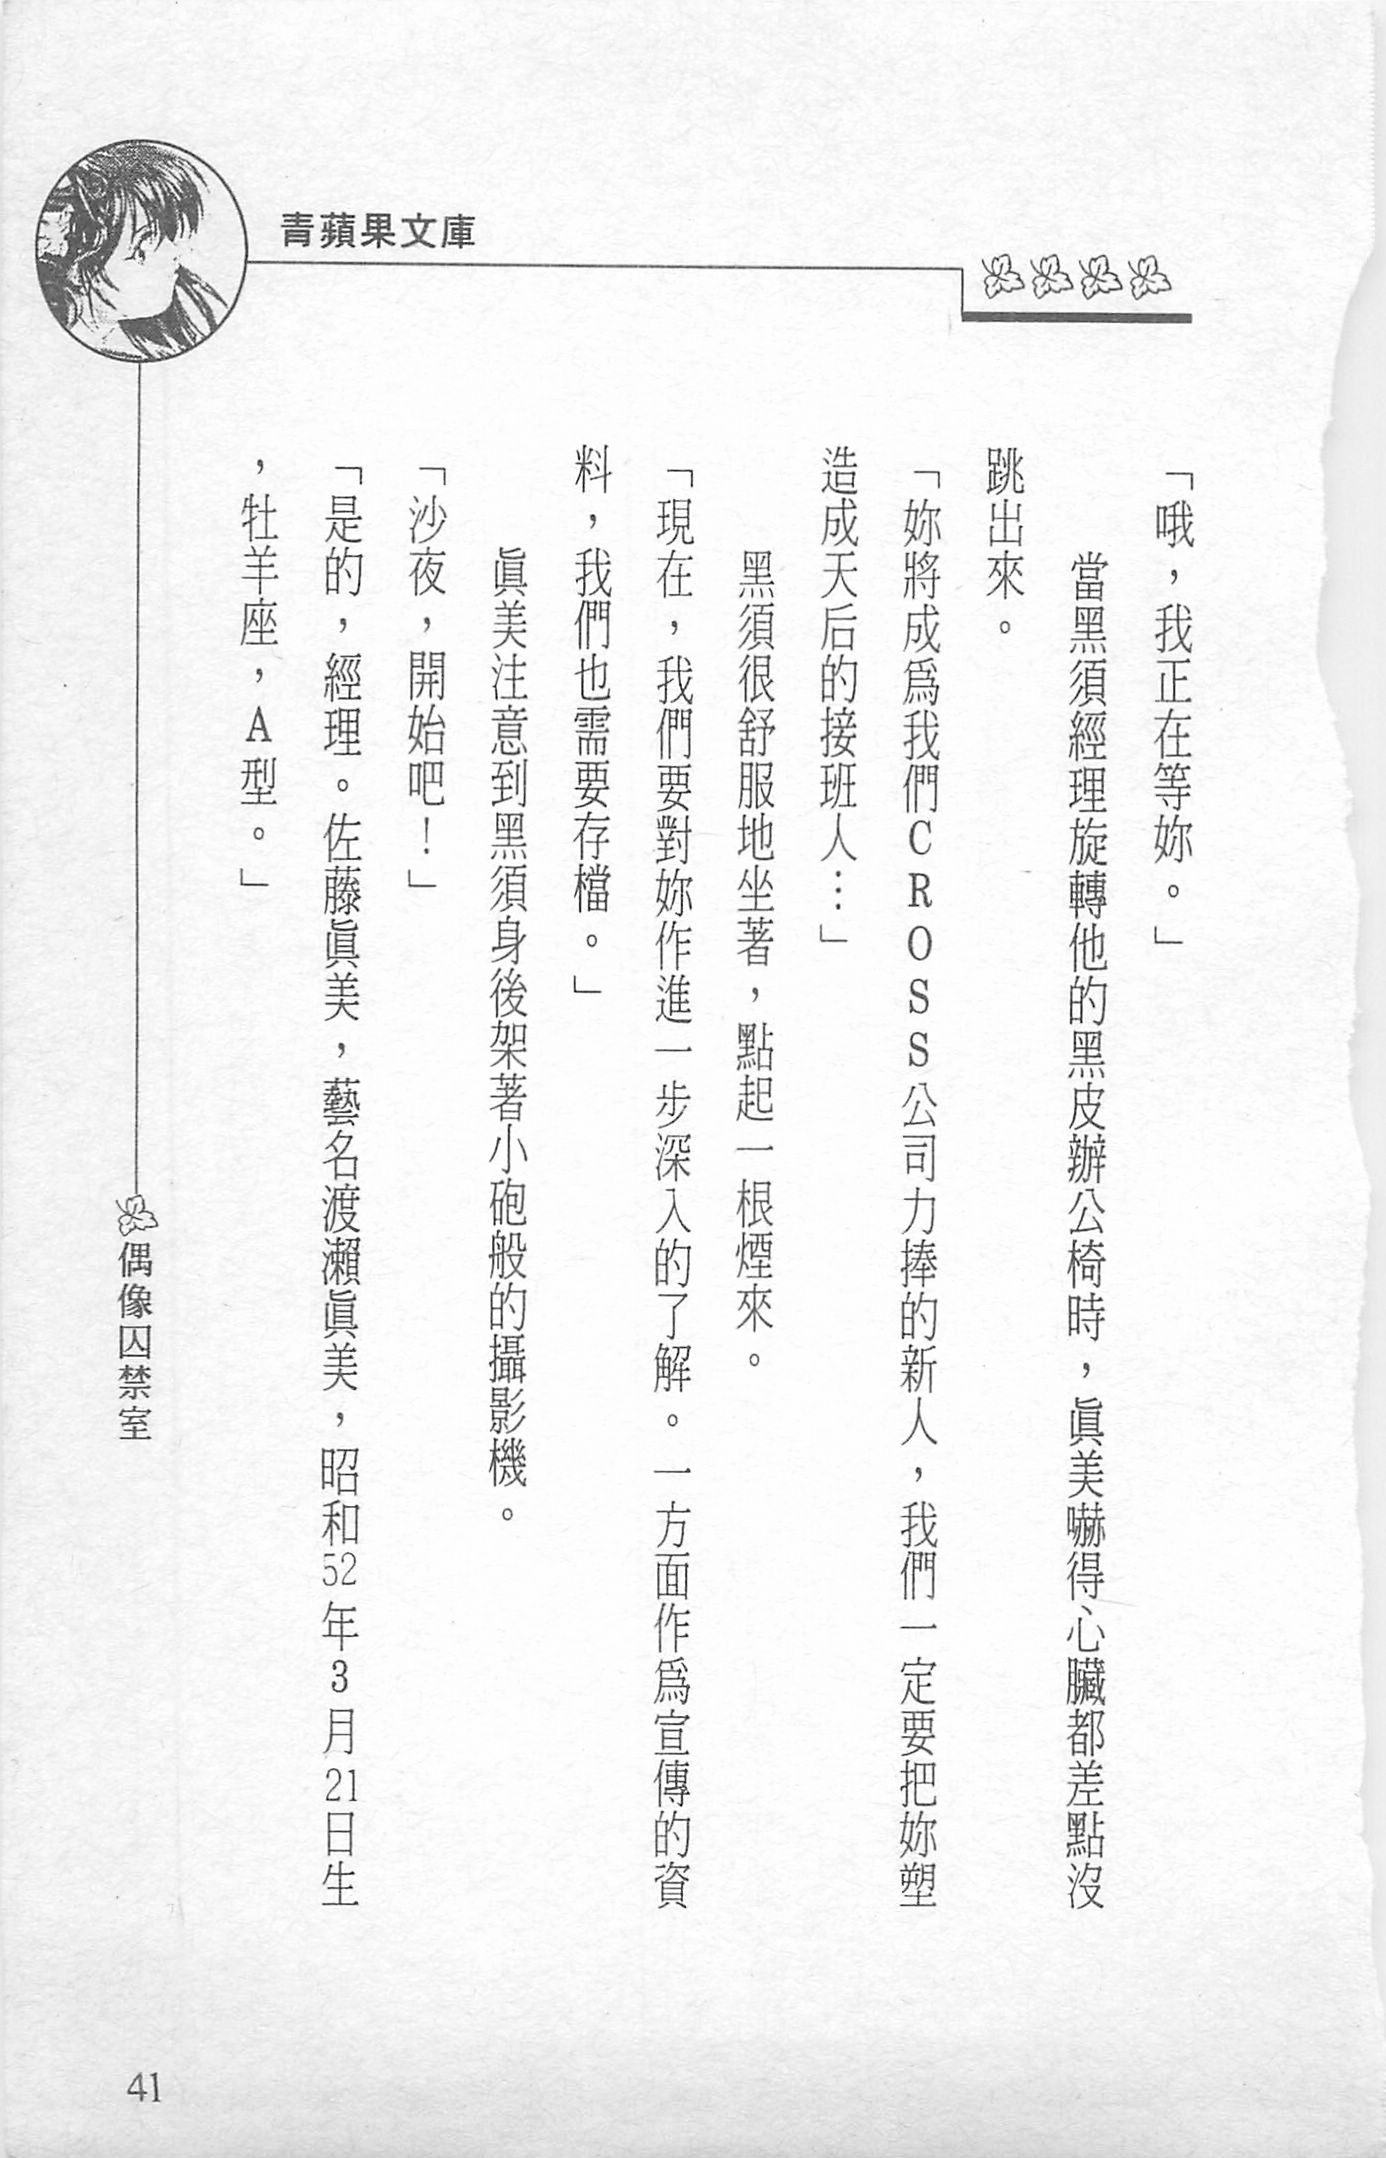 青蘋果文庫
「哦，我正在等妳。」
當黑須經理旋轉他的黑皮辦公椅時，眞美嚇得心臟都差點沒
跳出來。
「妳將成爲我們CROSS公司力捧的新人，我們一定要把妳塑
造成天后的接班人…」
黑須很舒服地坐著，點起一根煙來。
「現在，我們要對妳作進一步深入的了解。一方面作爲宣傳的資
料，我們也需要存檔。」
眞美注意到黑須身後架著小砲般的攝影機。
「沙夜，開始吧！」
「是的，經理。佐藤眞美，藝名渡瀨眞美，昭和52年3月21日生
，牡羊座，A型。」
偶像囚禁室
41